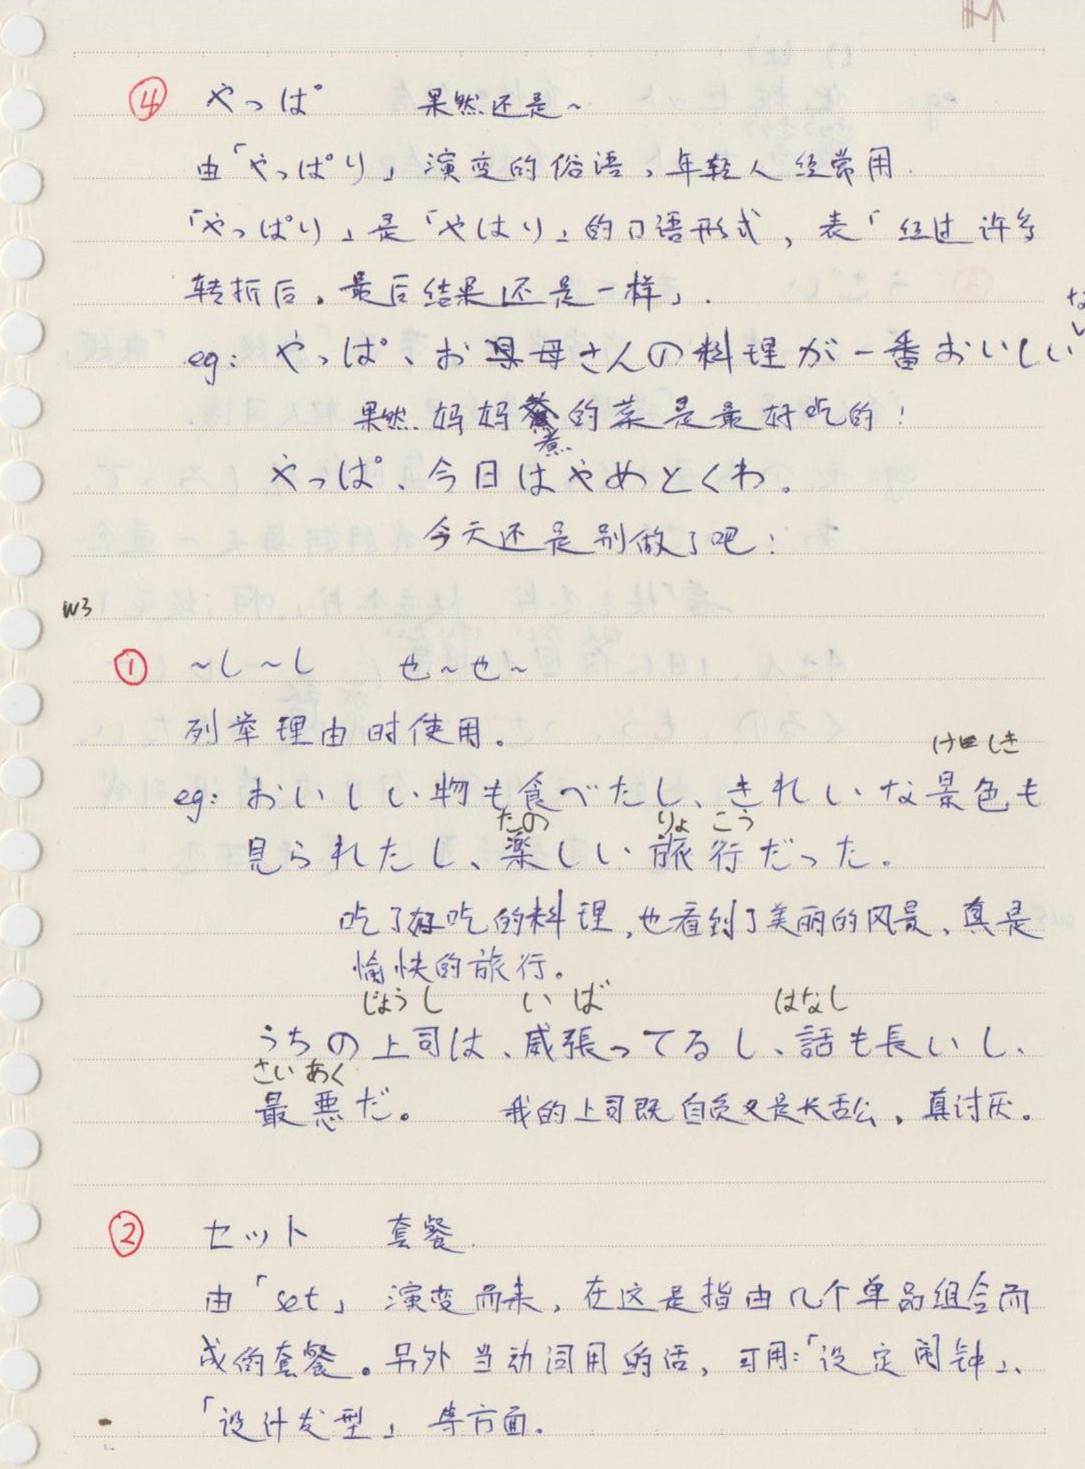 ④ やっぱ 果然还是~
由「やっぱり」演变的俗语,年轻人经常用.
「やっぱり」是「やはり」的口语形式,表「经过许多
转折后。最后结果还是一样」.
eg: やっぱ、お母さんの料理が一番おいしい
果然妈妈煮的菜是最好吃的!
やっぱ、今日はやめとくわ。
今天还是别做了吧!
W3
① ~し~し 也~也~
列举理由时使用。
けしき
eg: おいしい物も食べたし、きれいな景色も
たの りょこう
見られたし、楽しい旅行だった。
吃了好吃的料理,也看到了美丽的风景、真是
愉快的旅行。
じょうし いば はなし
うちの上司は、威張ってるし、話も長いし、
さいあく
最悪だ。 我的上司既自负又是长舌公,真讨厌。
② セット 套餐.
由「set」演变而来,在这是指由几个单品组合而
成的套餐。另外当动词用的话,可用:「设定闹钟」、
「设计发型」等方面.